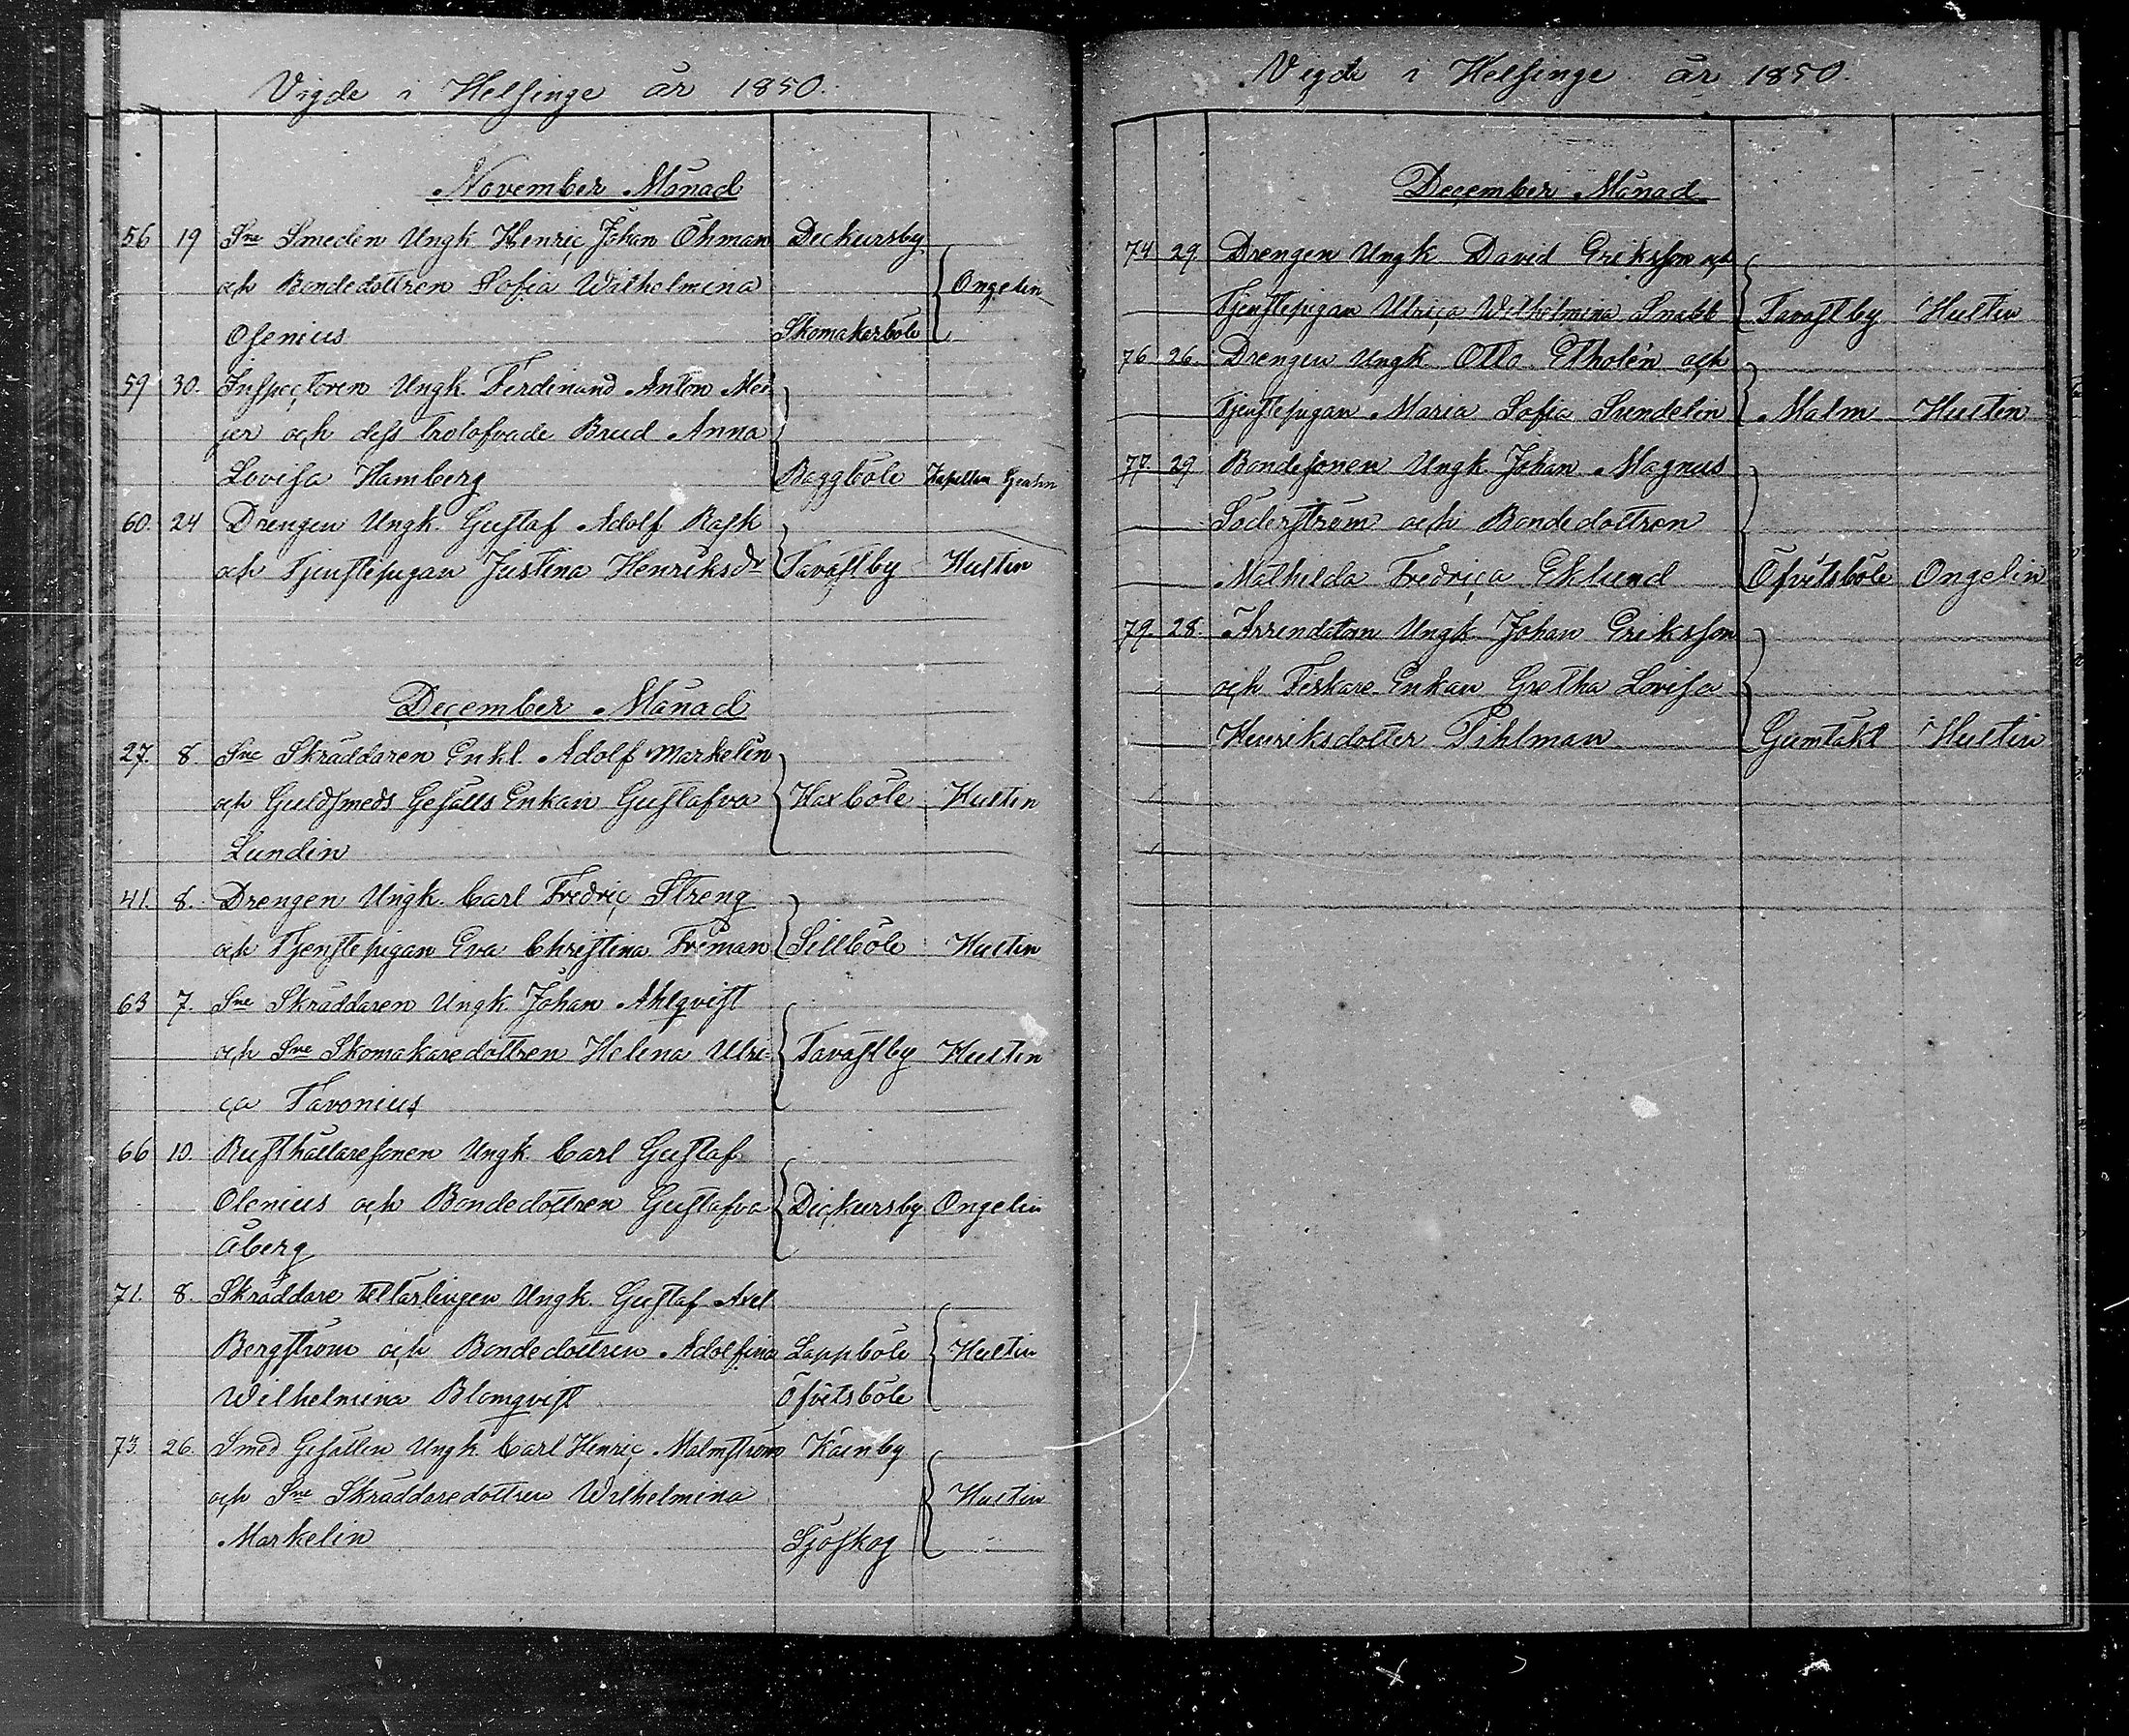 Vigde i Helsinge år 1850.
November Månad
56 19 Sne Smeden Ungk. Henric Johan Öhman Dickursby
och Bondedottren Sofia Wilhelmina Ongelin
Osenius Skomakarböle
59 30. Inspectoren Ungk. Ferdinand Anton Mei
jer och dess trolofvade Brud Anna
Lovisa Hamberg Baggböle
60. 24 Drengen Ungk. Gustaf Adolf Rask
och Tjenstepigan Justina Henriksdr Tavastby Hultin
December Månad
27. 8. Sne Skräddaren Enkl. Adolf Markelin
och Guldsmeds Gesälls Enkan Gustafva Haxböle Hultin
Lundin
41. 8. Drengen Ungk. Carl Fredric Streng
och Tjenstepigan Eva Christina Freman Sillböle Hultin
63 7. Sne Skräddaren Ungk. Johan Ahlqvist
och Sne Skomakaredottren Helena Ulri= Tavastby Hultin
ca Favonius
66 10. Rusthållaresonen Ungk. Carl Gustaf
Olenius och Bondedottren Gustafva Dickursby Ongelin
Åberg
71. 8. Skräddare Ungk. Gustaf Axel
Bergström och Bondedottren Adolfina Lappböle Hultin
Wilhelmina Blomqvist Öfvitsböle
73. 26. Smed Gesällen Ungk. Carl Henric Malmström Kåinby
och Sne Skräddaredottren Wilhelmina Hultin
Markelin Sjöskog
Vigde i Helsinge år 1850.
December Månad
74 29 Drengen Ungk. David Eriksson och
Tjenstepigan Ulrica Wilhelmina Snabb Tavastby Hultin
76 26. Drengen Ungk. Otto Etholén och
Tjenstepigan Maria Sofia Sundelin Malm Hultin
77. 29 Bondesonen Ungk. Johan Magnus
Söderström och Bondedottren
Mathilda Fredrica Eklund Öfvitsböle Ongelin
79. 28. Arrendatorn Ungk. Johan Eriksson
och Fiskare Enkan Gretha Lovisa
Henriksdotter Pihlman Gumtäkt Hultin